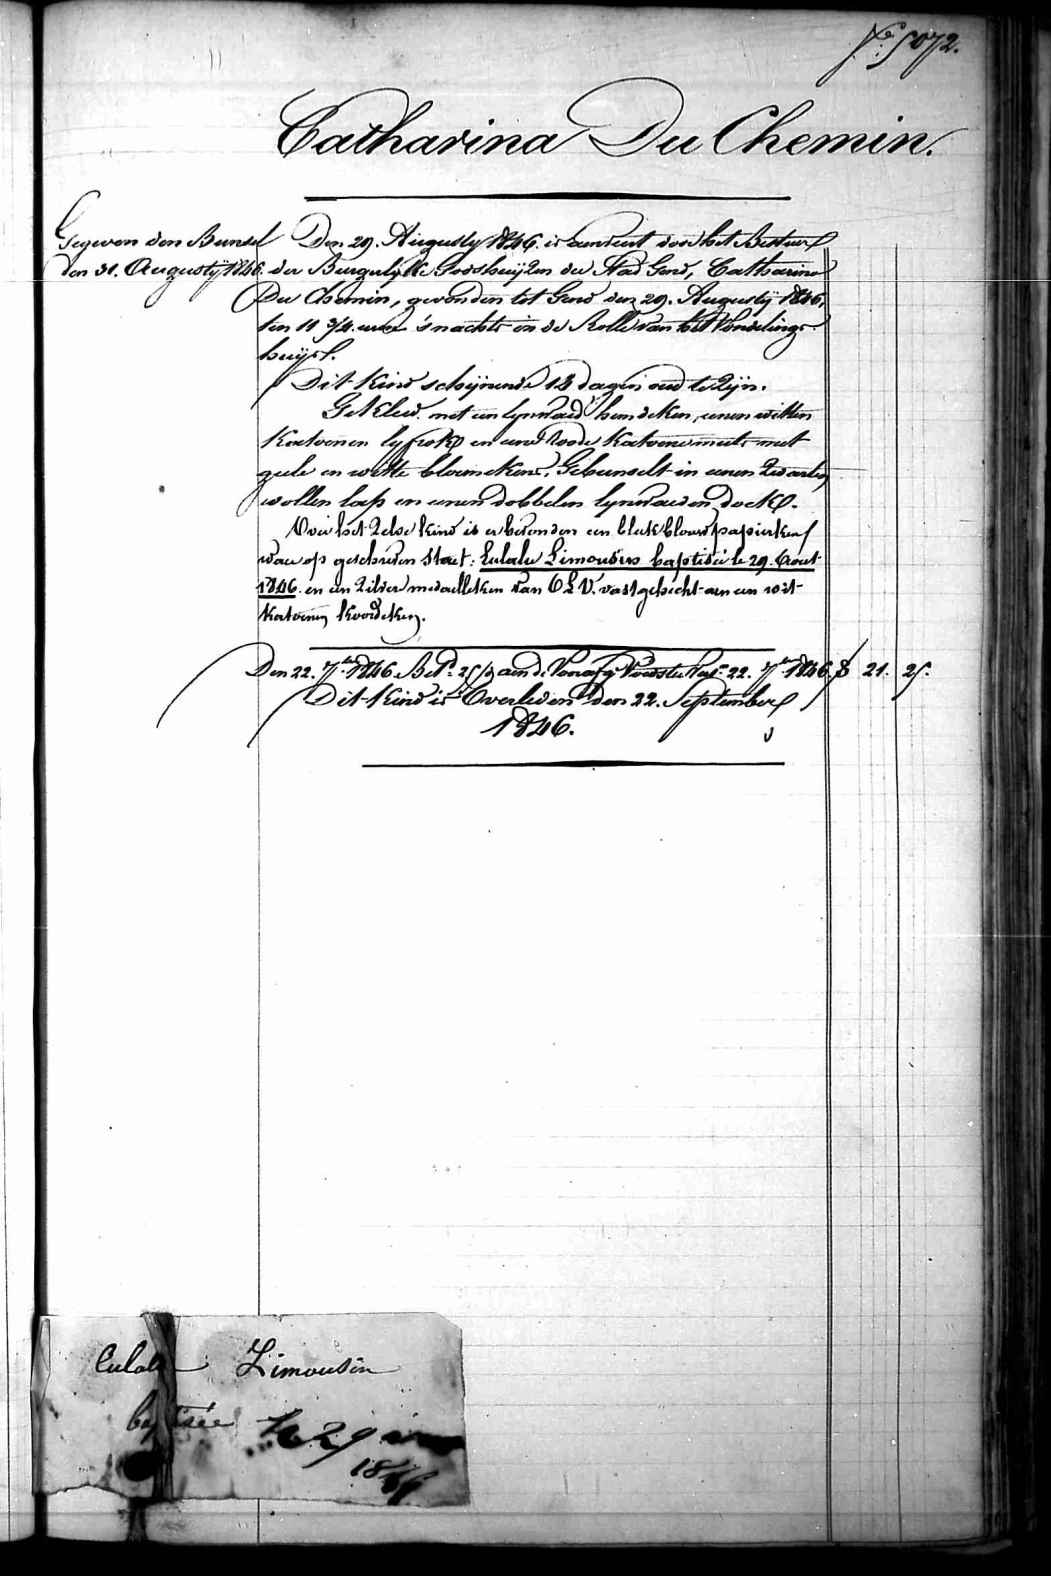 N.º 5072.
Catharina Du Chemin.
Gegeven den Bunsel
den 31. Augustij 1846.
Den 29. Augusty 1846. is aenveert door het Bestuer
der Burgerlyke Godshuyzen der Stad Gend, Catharina
Du Chemin, gevonden tot Gend den 29. Augustij 1846,
ten 11 3/4 uren 's nachts in de Rolle van het Vondelings-
huys.
Dit kind schynende 12 dagen oud te zyn.
Gekleed met een lynwaed hemdeken, eenen witten
katoenen lyfrok en eene roode katoene muts met
geele en witte bloemekens. Gebunselt in eenen zwarten
wollen lap en eenen dobbelen lynwaeden doek.
Over het zelve kind is er bevonden een bleek blouw papierken
waer op geschreven staet: Eulalie Limousin baptisée le 29. Aout
1846. en een zilver medailleken van O L V. vastgehecht aen een wit
katoenen koordeken.
Den 22. 7bre 1846 Bet. 25 aen de Voedster 22. 7bre 1846. 21. 25.
Dit kind is Overleden den 22. September
1846.
Eulalie Limousin
baptisée le 29
1846